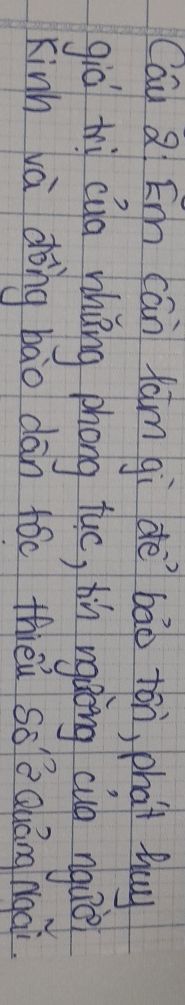 Câu 2: Em cần làm gì để bảo tồn, phát huy
giá trị của những phong tục, tín ngưỡng của người
Kinh và đồng bào dân tộc thiểu số ở Quảng Ngãi.